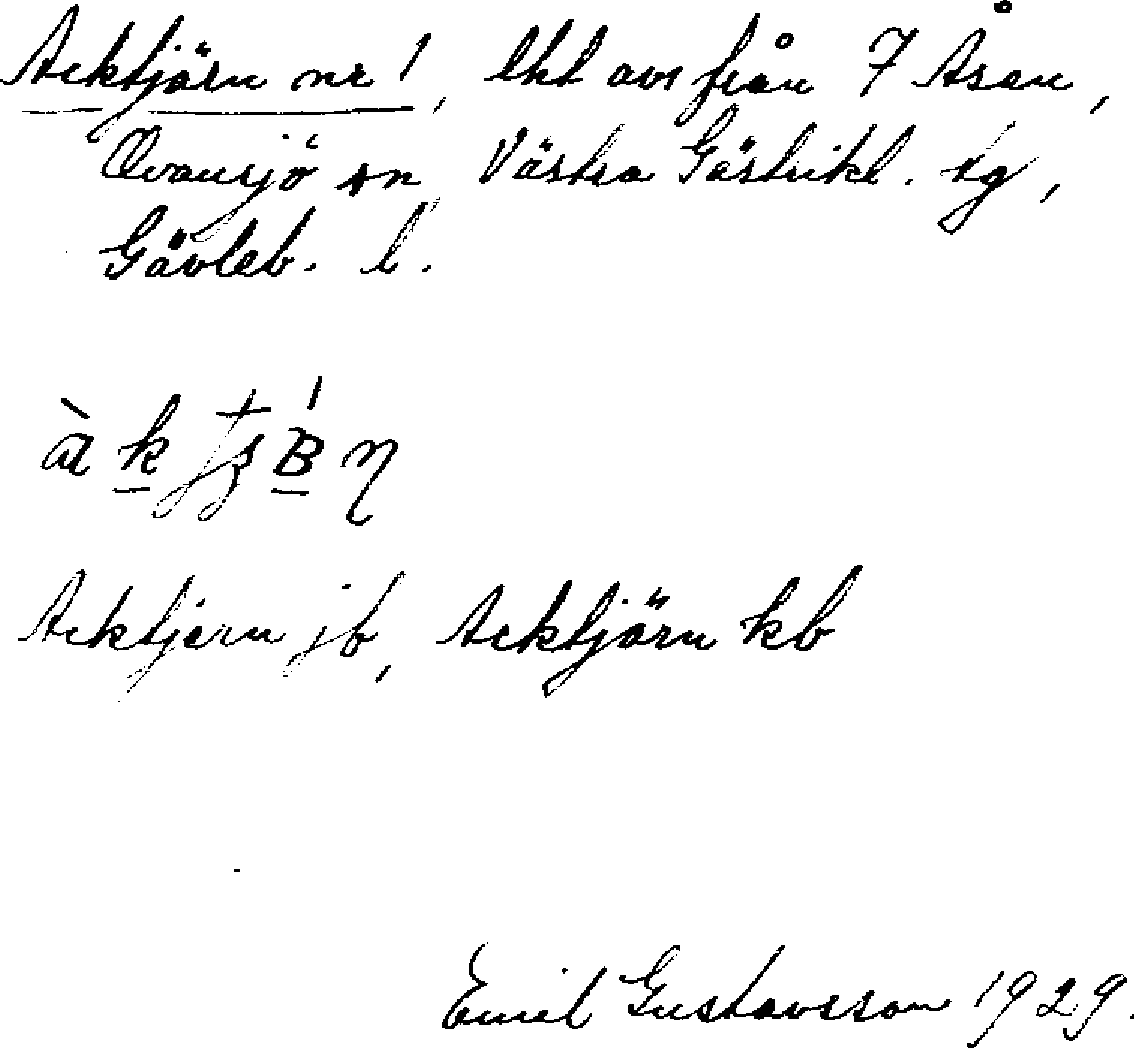 Acktjärn nr 1, lht avs från 7 Åsen,
Ovansjö sn, Västra Gästrikl. tg,
Gävleb. l.
Acktjern jb, Acktjärn kb
Emil Gustavsson 1929.